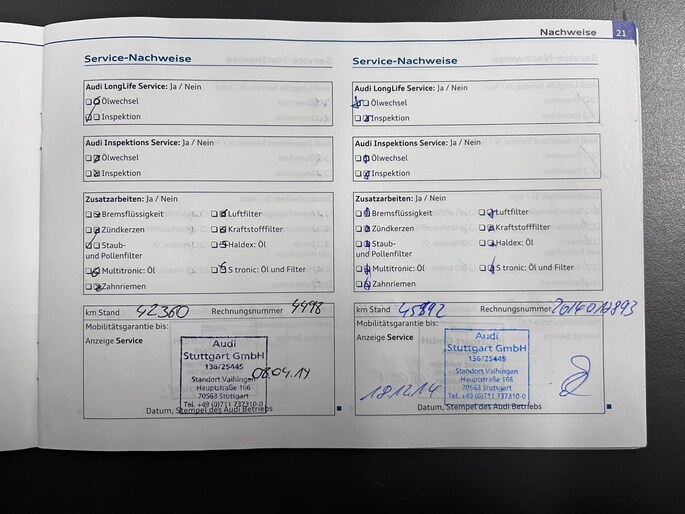 Nachweise 21
Service-Nachweise
Audi LongLife Service: Ja / Nein
Ölwechsel
Inspektion
Audi Inspektions Service: Ja / Nein
Ölwechsel
Inspektion
Zusatzarbeiten: Ja / Nein
Bremsflüssigkeit Luftfilter
Zündkerzen Kraftstofffilter
Staub- Haldex: Öl
und Pollenfilter
Multitronic: Öl S tronic: Öl und Filter
Zahnriemen
km Stand 42360 Rechnungsnummer 4498
Mobilitätsgarantie bis:
Anzeige Service
Audi
Stuttgart GmbH
136/25445
Standort Vaihingen
Hauptstraße 166
70563 Stuttgart
Tel. +49 (0)711 737310-0
08.04.14
Datum, Stempel des Audi Betriebs
Service-Nachweise
Audi LongLife Service: Ja / Nein
Ölwechsel
Inspektion
Audi Inspektions Service: Ja / Nein
Ölwechsel
Inspektion
Zusatzarbeiten: Ja / Nein
Bremsflüssigkeit Luftfilter
Zündkerzen Kraftstofffilter
Staub- Haldex: Öl
und Pollenfilter
Multitronic: Öl S tronic: Öl und Filter
Zahnriemen
km Stand 45892 Rechnungsnummer
Mobilitätsgarantie bis:
Anzeige Service
Audi
Stuttgart GmbH
136/25445
Standort Vaihingen
Hauptstraße 166
70563 Stuttgart
Tel. +49 (0)711 737310-0
18.12.14
Datum, Stempel des Audi Betriebs